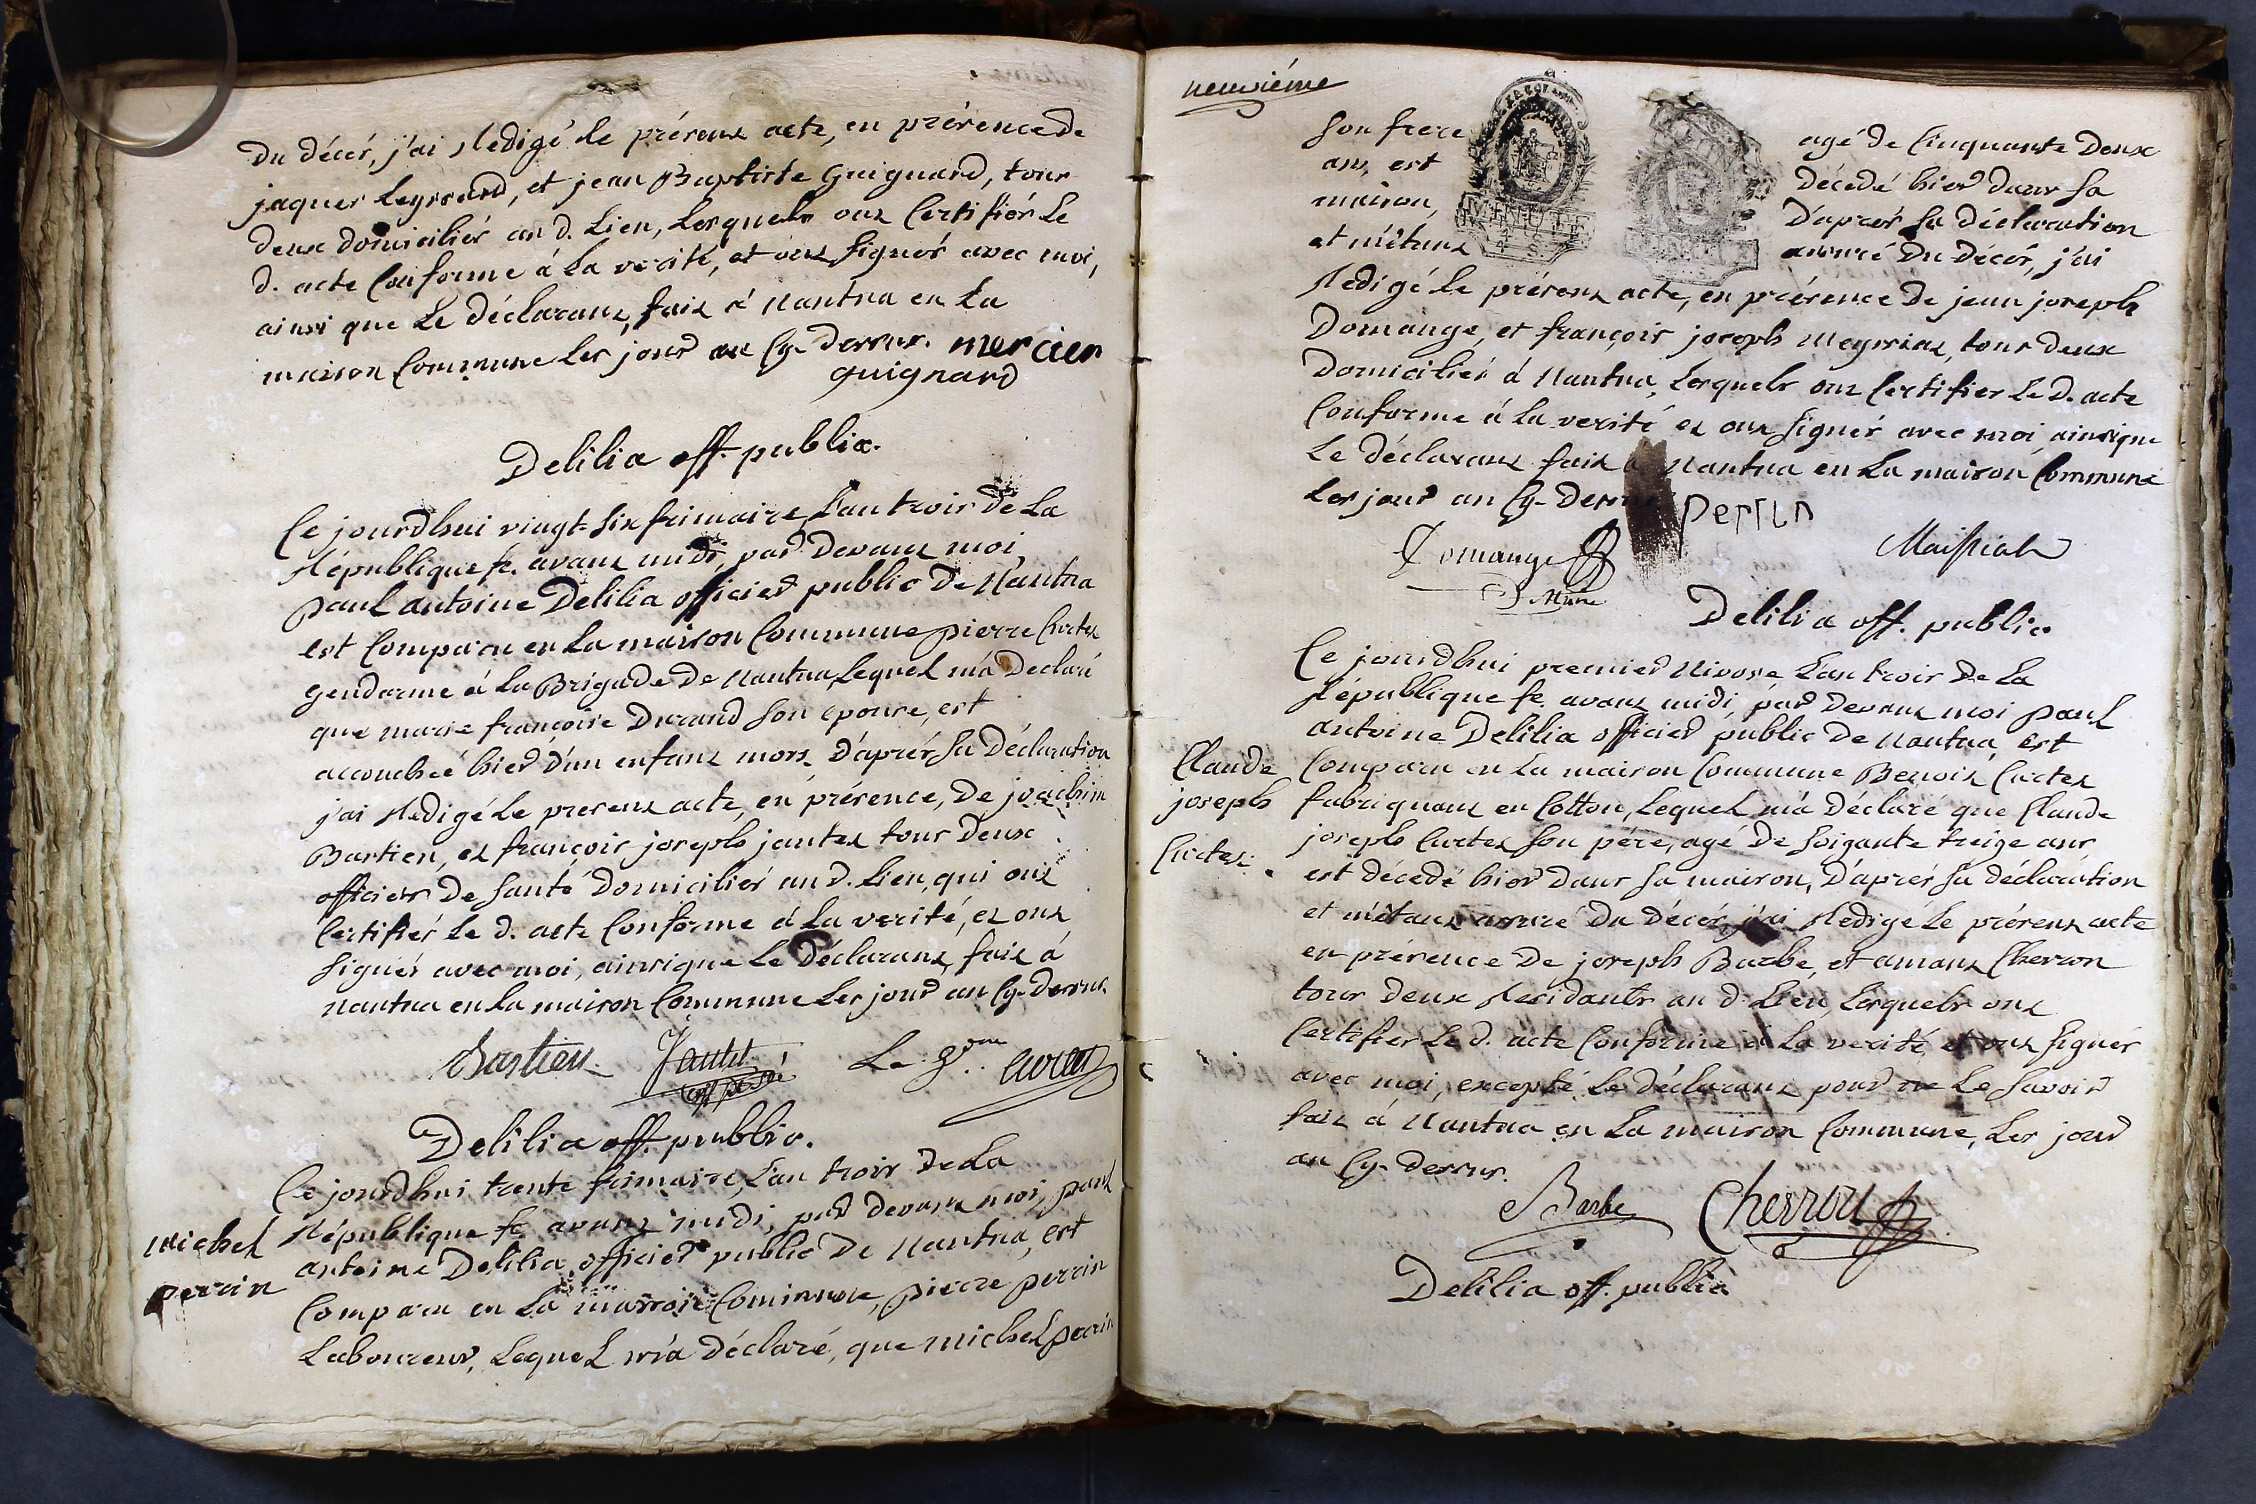 du décés, j'ai Redigé le présent acte, en présence de
jaques Leyssard, et jean Baptiste Guignard, tous
deux domiciliés au d. Lieu, Lesquels ont Certifiés Le
d. acte Conforme á La verité, et ont signés avec moi,
ainsi que Le déclarant, fait á Nantua en La
maison Commune Les jour an Cy-dessus. mercier
guignard
Delilia off. public.
Ce jourdhui vingt-six frimaire, L'an trois de La
République fe. avant midi, par devant moi
paul antoine Delilia officier public de Nantua
est Comparu en La maison Commune pierre Curtet
gendarme á La Brigade de Nantua, Lequel m'a declaré
que marie françoise Durand son epouse, est
accouchée hier d'un enfant mort, d'aprés sa déclaration
j'ai Redigé Le present acte, en présence, de joachim
Bastien, et françois joseph jantet tous deux
officiers de santé domiciliés au d. Lieu, qui ont
Certifiés Le d. acte Conforme á La verité, et ont
signés avec moi, ainsi que Le déclarant, fait á
Nantua en La maison Commune Les jour an Cy-dessus
Bastien Jantet Le gme. Curtet
off de sté
Delilia off. public.
Ce jourdhui trente frimaire, L'an trois de La
République fe. avant midi, par devant moi, paul
michel
perrin
antoine Delilia officier public de Nantua, est
Comparu en La maison Commune, pierre perrin
Laboureur, Lequel m'a déclaré, que michel perrin
neuvième
son frere agé de Cinquante deux
ans, est décedé hier dans sa
maison, d'aprés sa déclaration
et m'étant assuré du décés, j'ai
Redigé Le présent acte, en présence de jean joseph
Domange, et françois joseph Meyssiat, tous deux
domiciliés á Nantua, Lesquels ont Certifier Le d. acte
Conforme á La verité et ont signés avec moi ainsi que
Le déclarant fait á Nantua en La maison Commune
Les jour an Cy-dessus perrin
Domange Maissiat
Delilia off. public.
Ce jourdhui premier Nivose L'an trois de La
République fe. avant midi, par devant moi paul
antoine Delilia officier public de Nantua, est
Claude
joseph
Curtet.
Comparu en La maison Commune Benoit Curtet
fabriquant en Cotton, Lequel m'a déclaré que Claude
joseph Curtet son pére, agé de soixante treize ans
est décedé hier dans sa maison, d'aprés sa déclaration
et m'étant assuré du décés, j'ai Redigé Le présent acte
en présence de joseph Barbe, et amant Cherron
tous deux Residants au d. Lieu, Lesquels ont
Certifier Le d. acte Conforme á La verité, et ont signés
avec moi, excepté Le déclarant pour ne Le savoir
fait á Nantua en La maison Commune, Les jour
an Cy-dessus.
Barbe Cherron
Delilia off. public